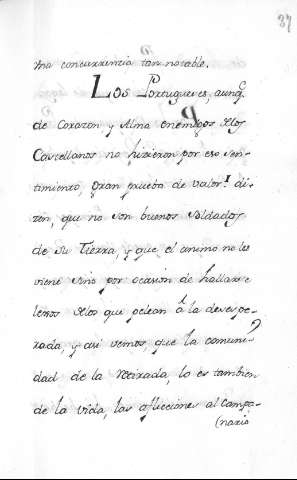 37
Vna concurrencia tan notable.
Los Portugueses, aunq̃
de Corazon y Alma enemigos dlos
Castellanos no hizieron por eso sen-
timiento, gran prueba de valor! di-
zen, que no son buenos Soldados
de su Tierra, y que el animo no les
viene sino por ocasion de hallarse
lexos dlos que pelean à la desespe-
rada, y asi vemos, que la comuni-
dad de la llexada, lo es tambien
de la vida, las aflicciones al Campa-
(nario